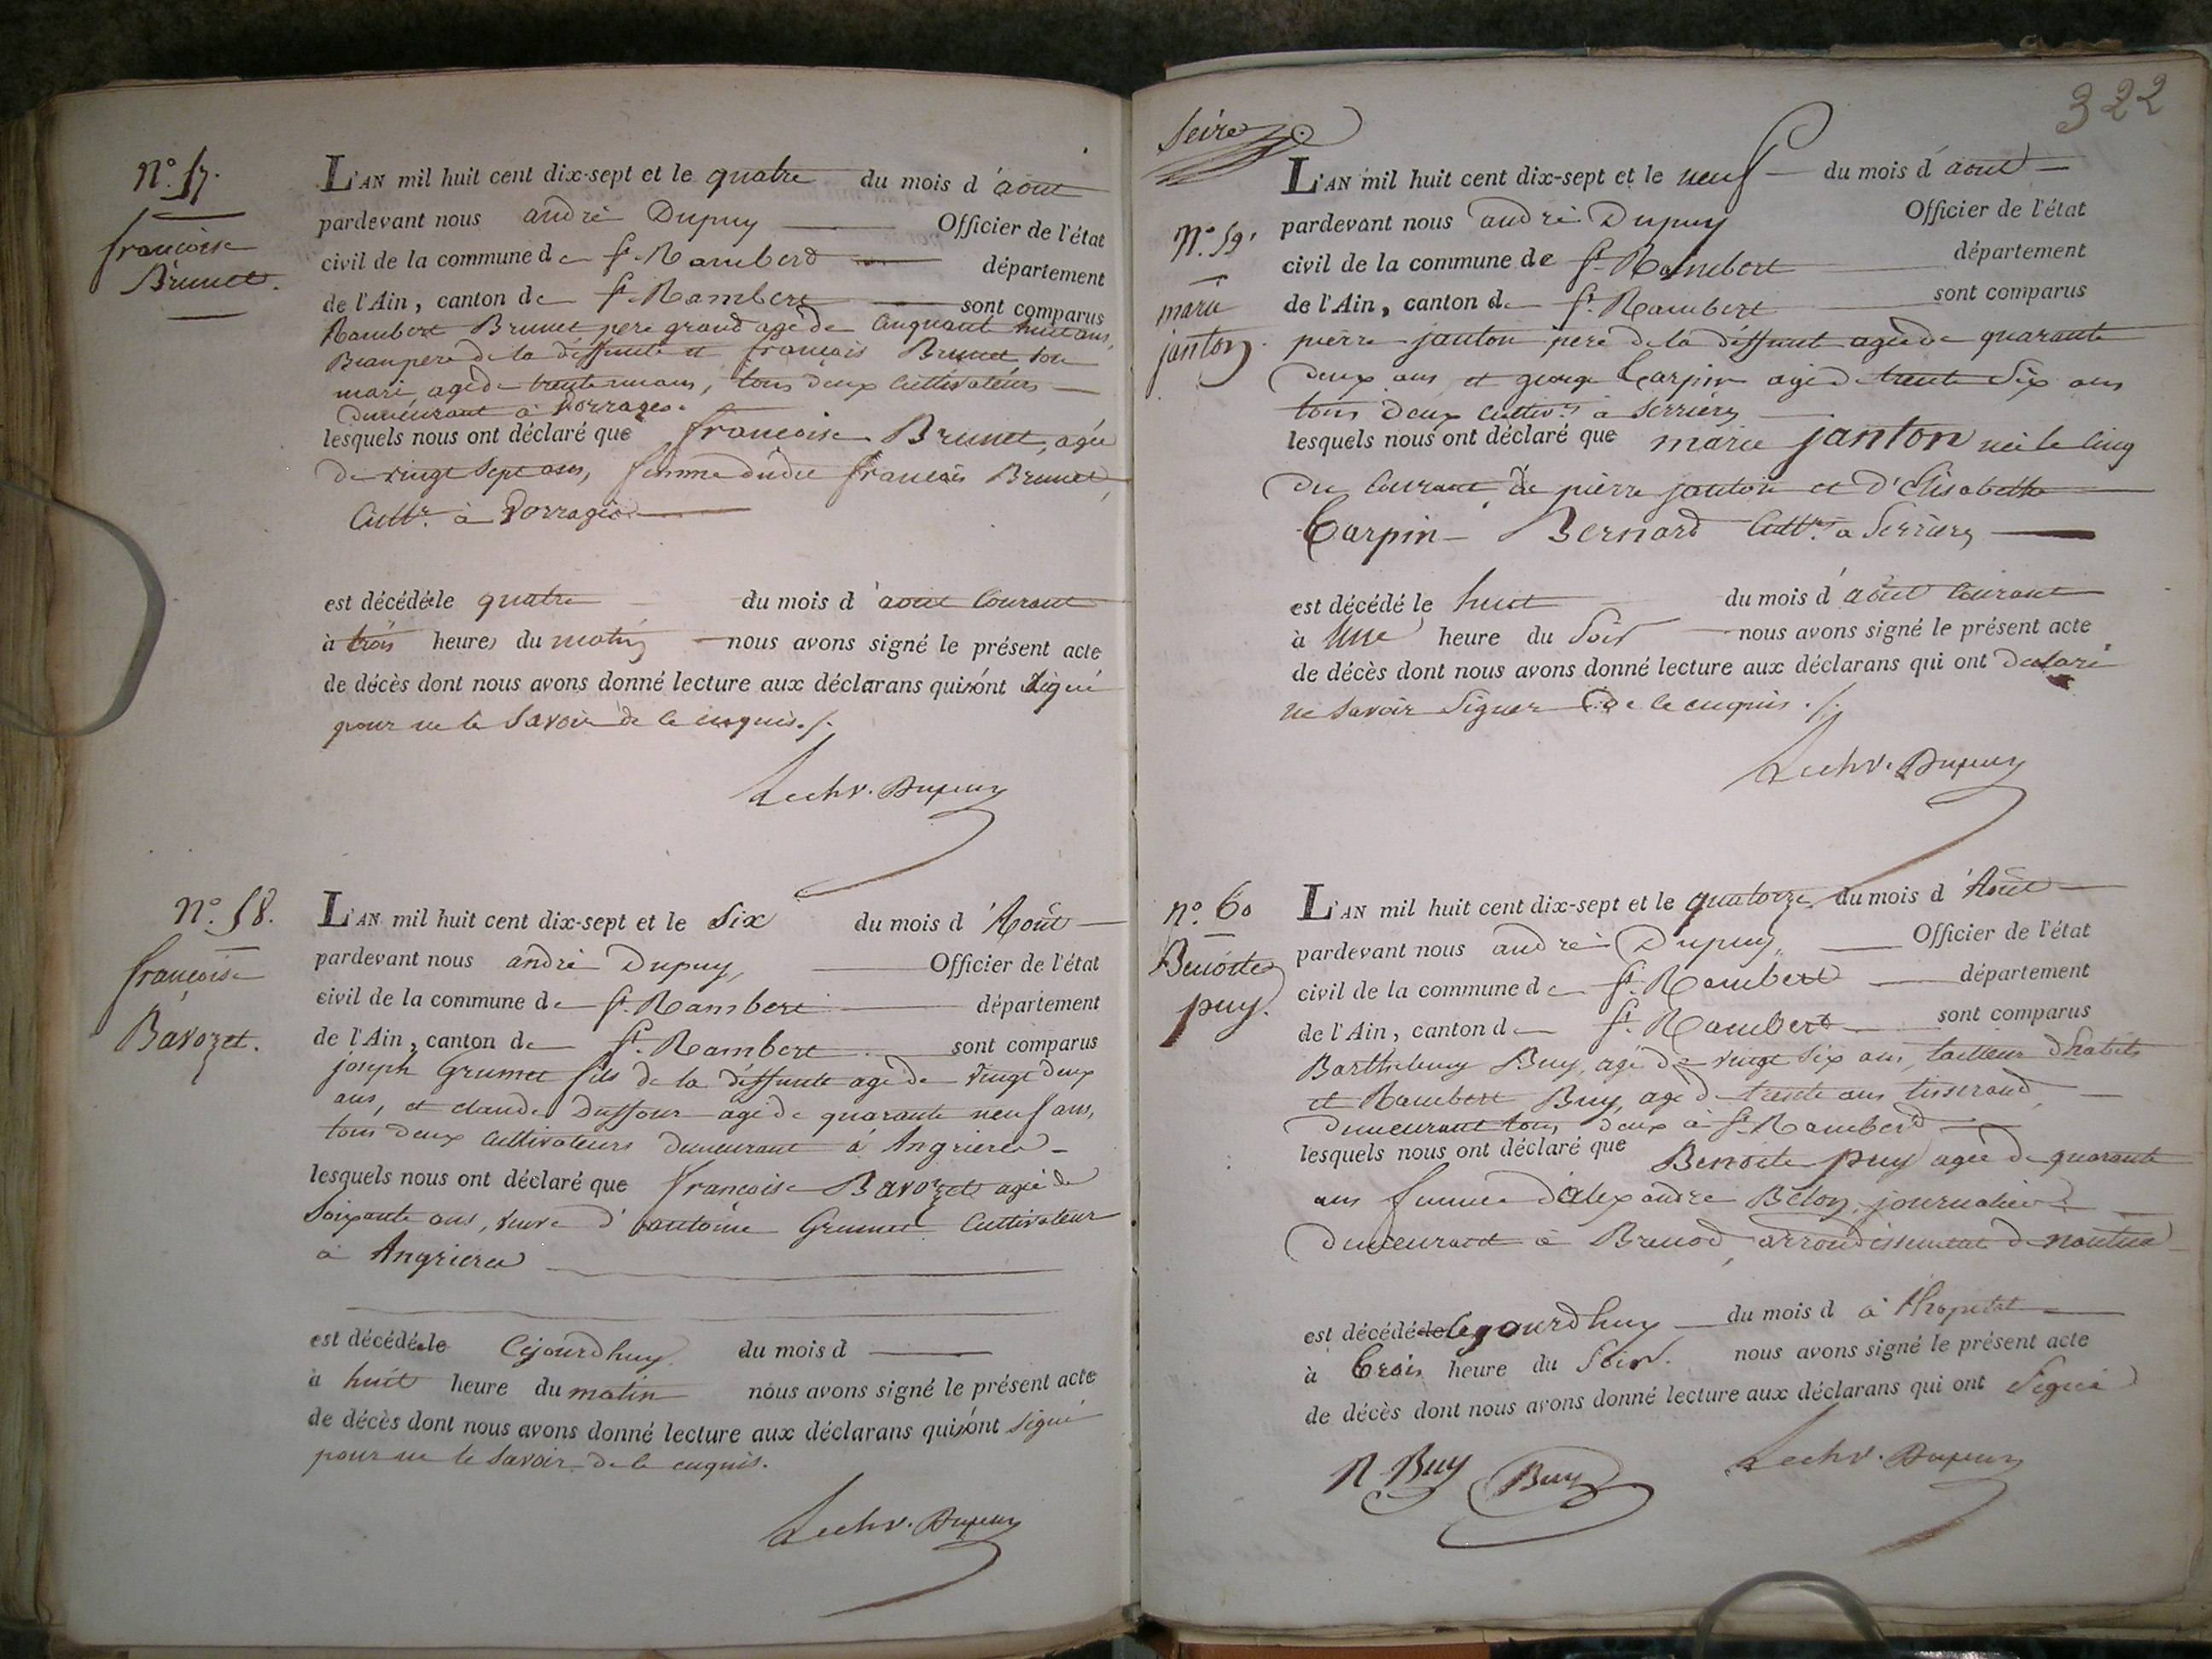 N.° 57.
francoise
Brunet.
L'AN mil huit cent dix-sept et le quatre du mois d'aout
pardevant nous andré Dupuy Officier de l'état
civil de la commune de St. Rambert département
de l'Ain, canton de St. Rambert sont comparus
Rambert Brunet pere grand agé de cinquant huit ans,
Beaupere de la deffunte et françois Brunet son
mari agé de trente ans, tous deux cultivateurs
demeurant à Dorrages.
lesquels nous ont déclaré que francoise Brunet, agée
de vingt sept ans, femme dudit francois Brunet,
Cultr. à Dorrages
est décédée le quatre du mois d'aout Courant
à trois heures du matin nous avons signé le présent acte
de décès dont nous avons donné lecture aux déclarans qui n'ont signé
pour ne le savoir de ce enquis./.
Lechv. Dupuy
N.° 58.
francoise
Bavozet.
L'AN mil huit cent dix-sept et le Six du mois d'Août
pardevant nous andré Dupuy, Officier de l'état
civil de la commune de St. Rambert département
de l'Ain, canton de St. Rambert sont comparus
joseph Grumet fils de la deffunte agé de vingt deux
ans, et claude Duffour agé de quarante neuf ans,
tous deux cultivateurs demeurant à Angrieres
lesquels nous ont déclaré que francoise Bavozet agée de
Soixante ans, veuve d'antoine Grumet Cultivateur
à Angrieres
est décédée le Cejourdhuy du mois d
à huit heure du matin nous avons signé le présent acte
de décès dont nous avons donné lecture aux déclarans qui n'ont signé
pour ne le savoir de ce enquis.
Lechv. Dupuy
322
N.° 59.
marie
janton.
L'AN mil huit cent dix-sept et le neuf du mois d'aout
pardevant nous andré Dupuy Officier de l'état
civil de la commune de St. Rambert département
de l'Ain, canton de St. Rambert sont comparus
pierre janton pere de la deffunt agé de quarante
deux ans et george Carpin agé de trente Six ans
tous deux cultivrs. à Serrieres
lesquels nous ont déclaré que marie janton née le cinq
du Courant de pierre janton et d'Elisabette
Carpin Bernard Cultrs. a Serrieres
est décédé le huit du mois d'aout Courant
à une heure du Soir nous avons signé le présent acte
de décès dont nous avons donné lecture aux déclarans qui ont déclaré
ne savoir Signer de ce enquis./.
Lechv. Dupuy
n.° 60
Benoite
puy.
L'AN mil huit cent dix-sept et le quatorze du mois d'Août
pardevant nous andré Dupuy, Officier de l'état
civil de la commune de St. Rambert département
de l'Ain, canton de St. Rambert sont comparus
Barthelemy Buy, agé de vingt Six ans, tailleur d'habits
et Rambert Buy, agé de trente ans tisserand
demeurant tous deux à St. Rambert
lesquels nous ont déclaré que Benoite puy agée de quarante
ans femme d'alexandre Bélon, journalier
demeurant à Brenod, arrondissement de nantua
est décédé le Cejourdhuy du mois d à l'hopital
à trois heure du Soir. nous avons signé le présent acte
de décès dont nous avons donné lecture aux déclarans qui ont Signé
R Buy Buy Lechv. Dupuy